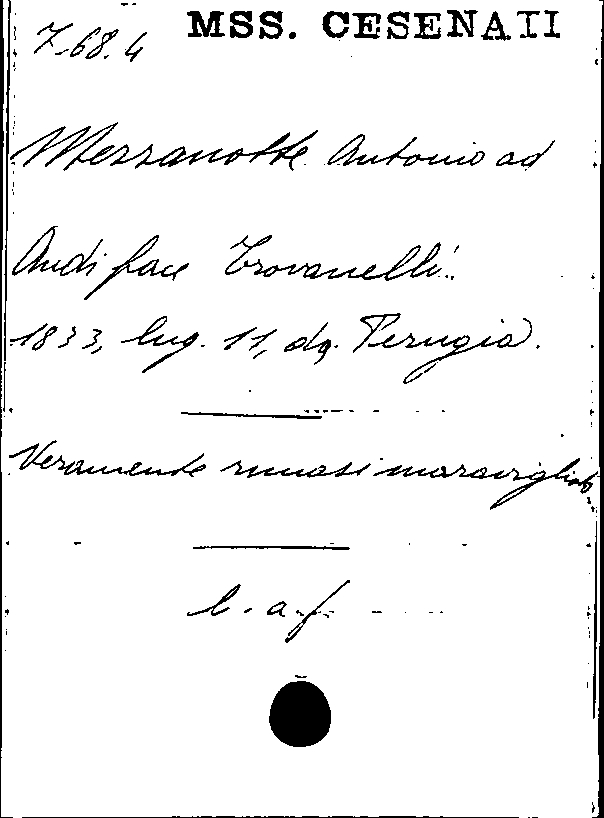 MSS. CESENATI
7.68.4
Mezzanotte Antonio ad
Audiface Trovanelli.
1833, lug. 11, da Perugia.
Veramente rimasi maravigliato
l. a. f.